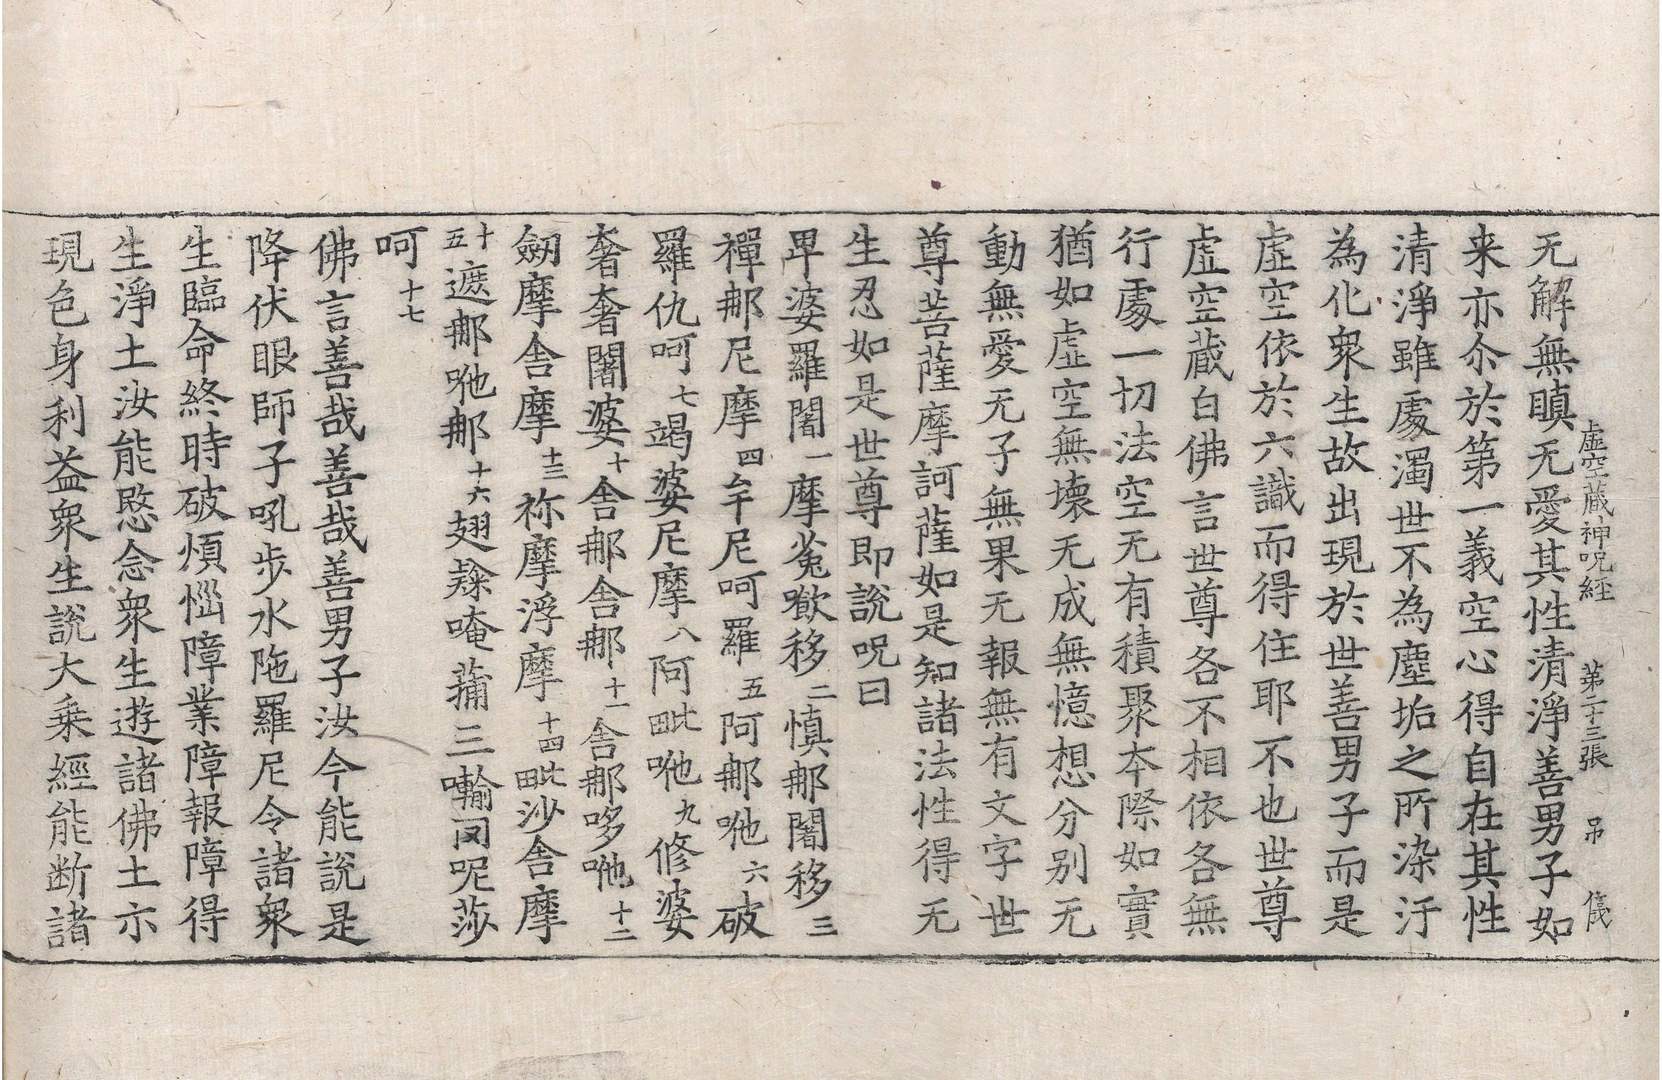 虛空藏神呪經 第二十三張 弔 儀
无解無瞋无愛其性清淨善男子如
来亦尒於第一義空心得自在其性
清淨雖處濁世不為塵垢之所染汙
為化衆生故出現於世善男子而是
虛空依於六識而得住耶不也世尊
虛空藏白佛言世尊各不相依各無
行處一切法空无有積聚本際如實
猶如虛空無壞无成無憶想分別无
動無愛无子無果无報無有文字世
尊菩薩摩訶薩如是知諸法性得无
生忍如是世尊即說呪曰
𤰞婆羅闍一摩㝹歇移二慎那闍移三
禪那尼摩四牟尼呵羅五阿那吔六破
羅仇呵七竭婆尼摩八阿毗吔九修婆
奢奢闍婆十舍那舍那十一舍那哆吔十二
劒摩舍摩十三祢摩浮摩十四毗沙舍摩
十五遮那吔那十六翅䅶唵蒱三𠿕罔呢莎
呵十七
佛言善哉善哉善男子汝今能說是
降伏眼師子吼步水陁羅尼令諸衆
生臨命終時破煩惱障業障報障得
生淨土汝能愍念衆生遊諸佛土示
現色身利益衆生說大乘經能断諸